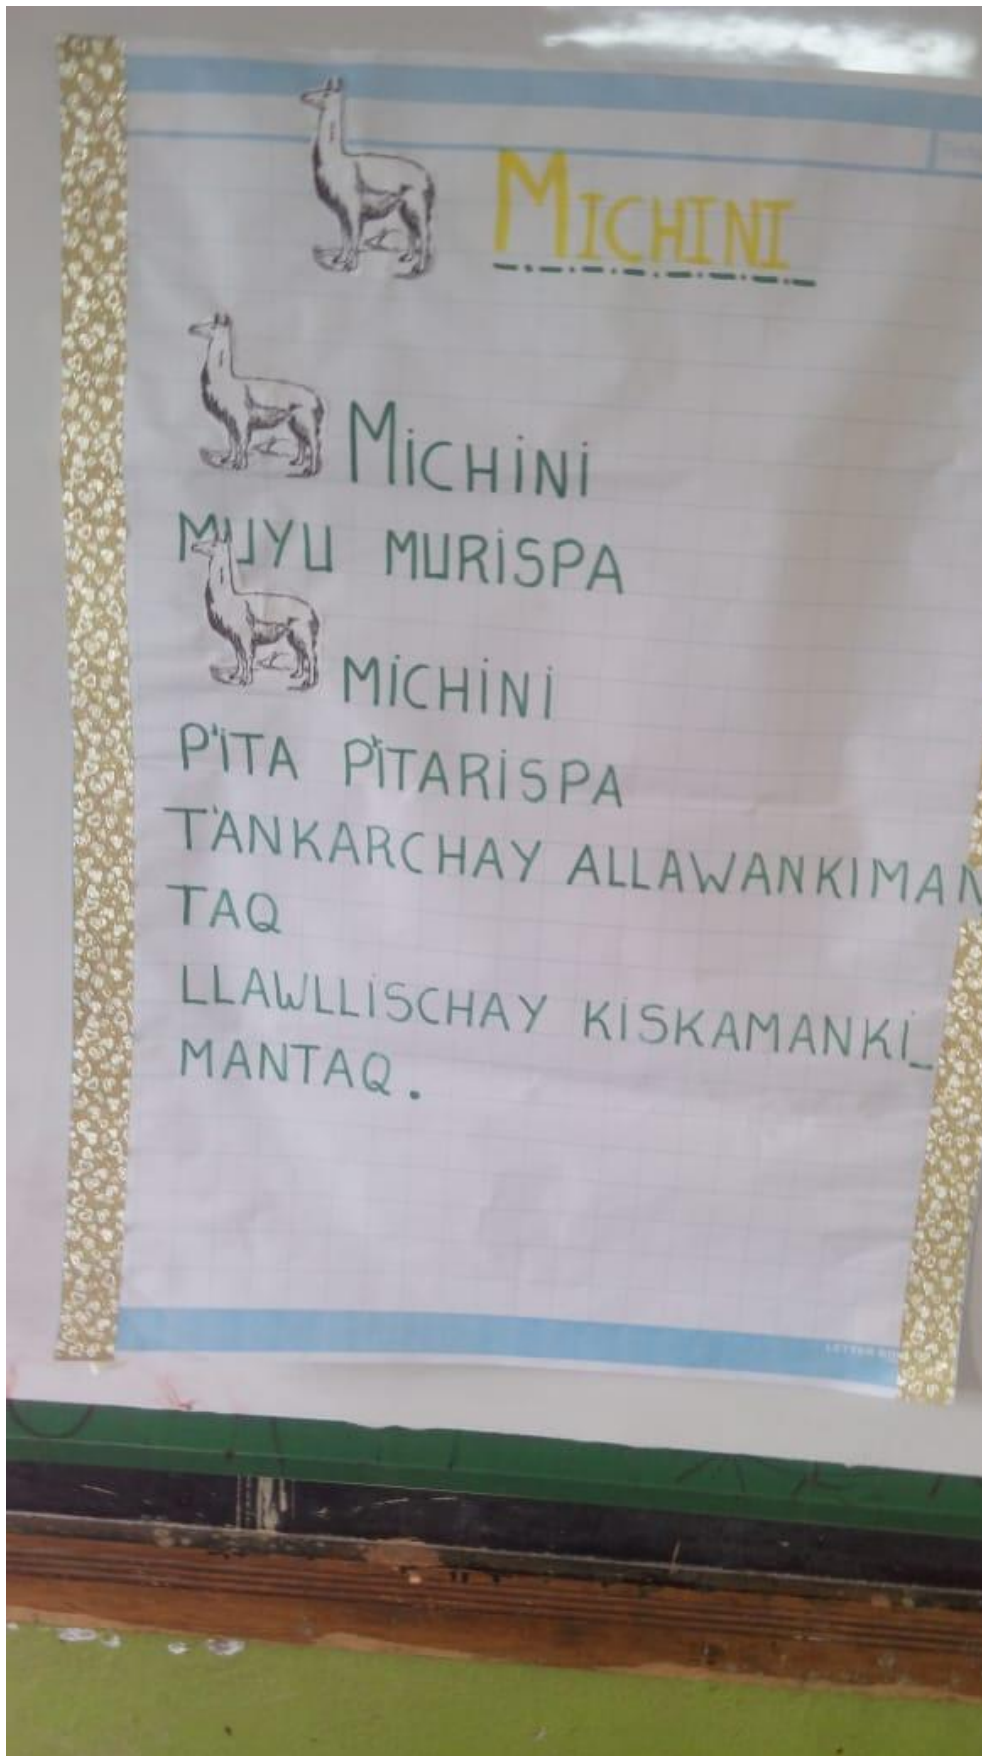 MICHINI
MiCHiNi
MUYU MURiSPA
MiCHiNi
P'iTA P'iTARiSPA
T'ANKARCHAY ALLAWANKIMAN
TAQ
LLAWLLiSCHAY KiSKAMANKi_
MANTAQ.